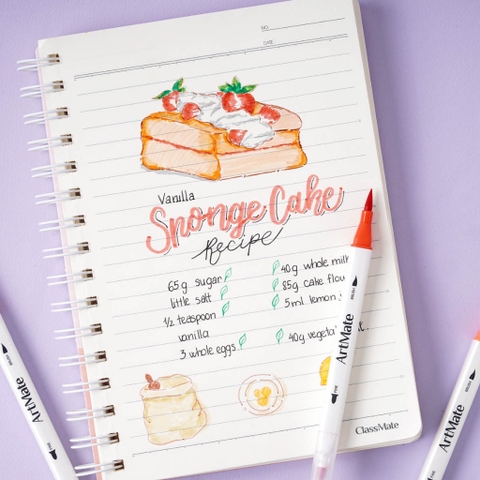 NO.
DATE
Vanilla
Sponge Cake
Recipe
65g sugar
little salt
1/2 teaspoon
vanilla
3 whole eggs
40g whole milk
85g cake
5ml lemon
40g
ClassMate
ArtMate
ArtMate BRUSH
ArtMate BRUSH